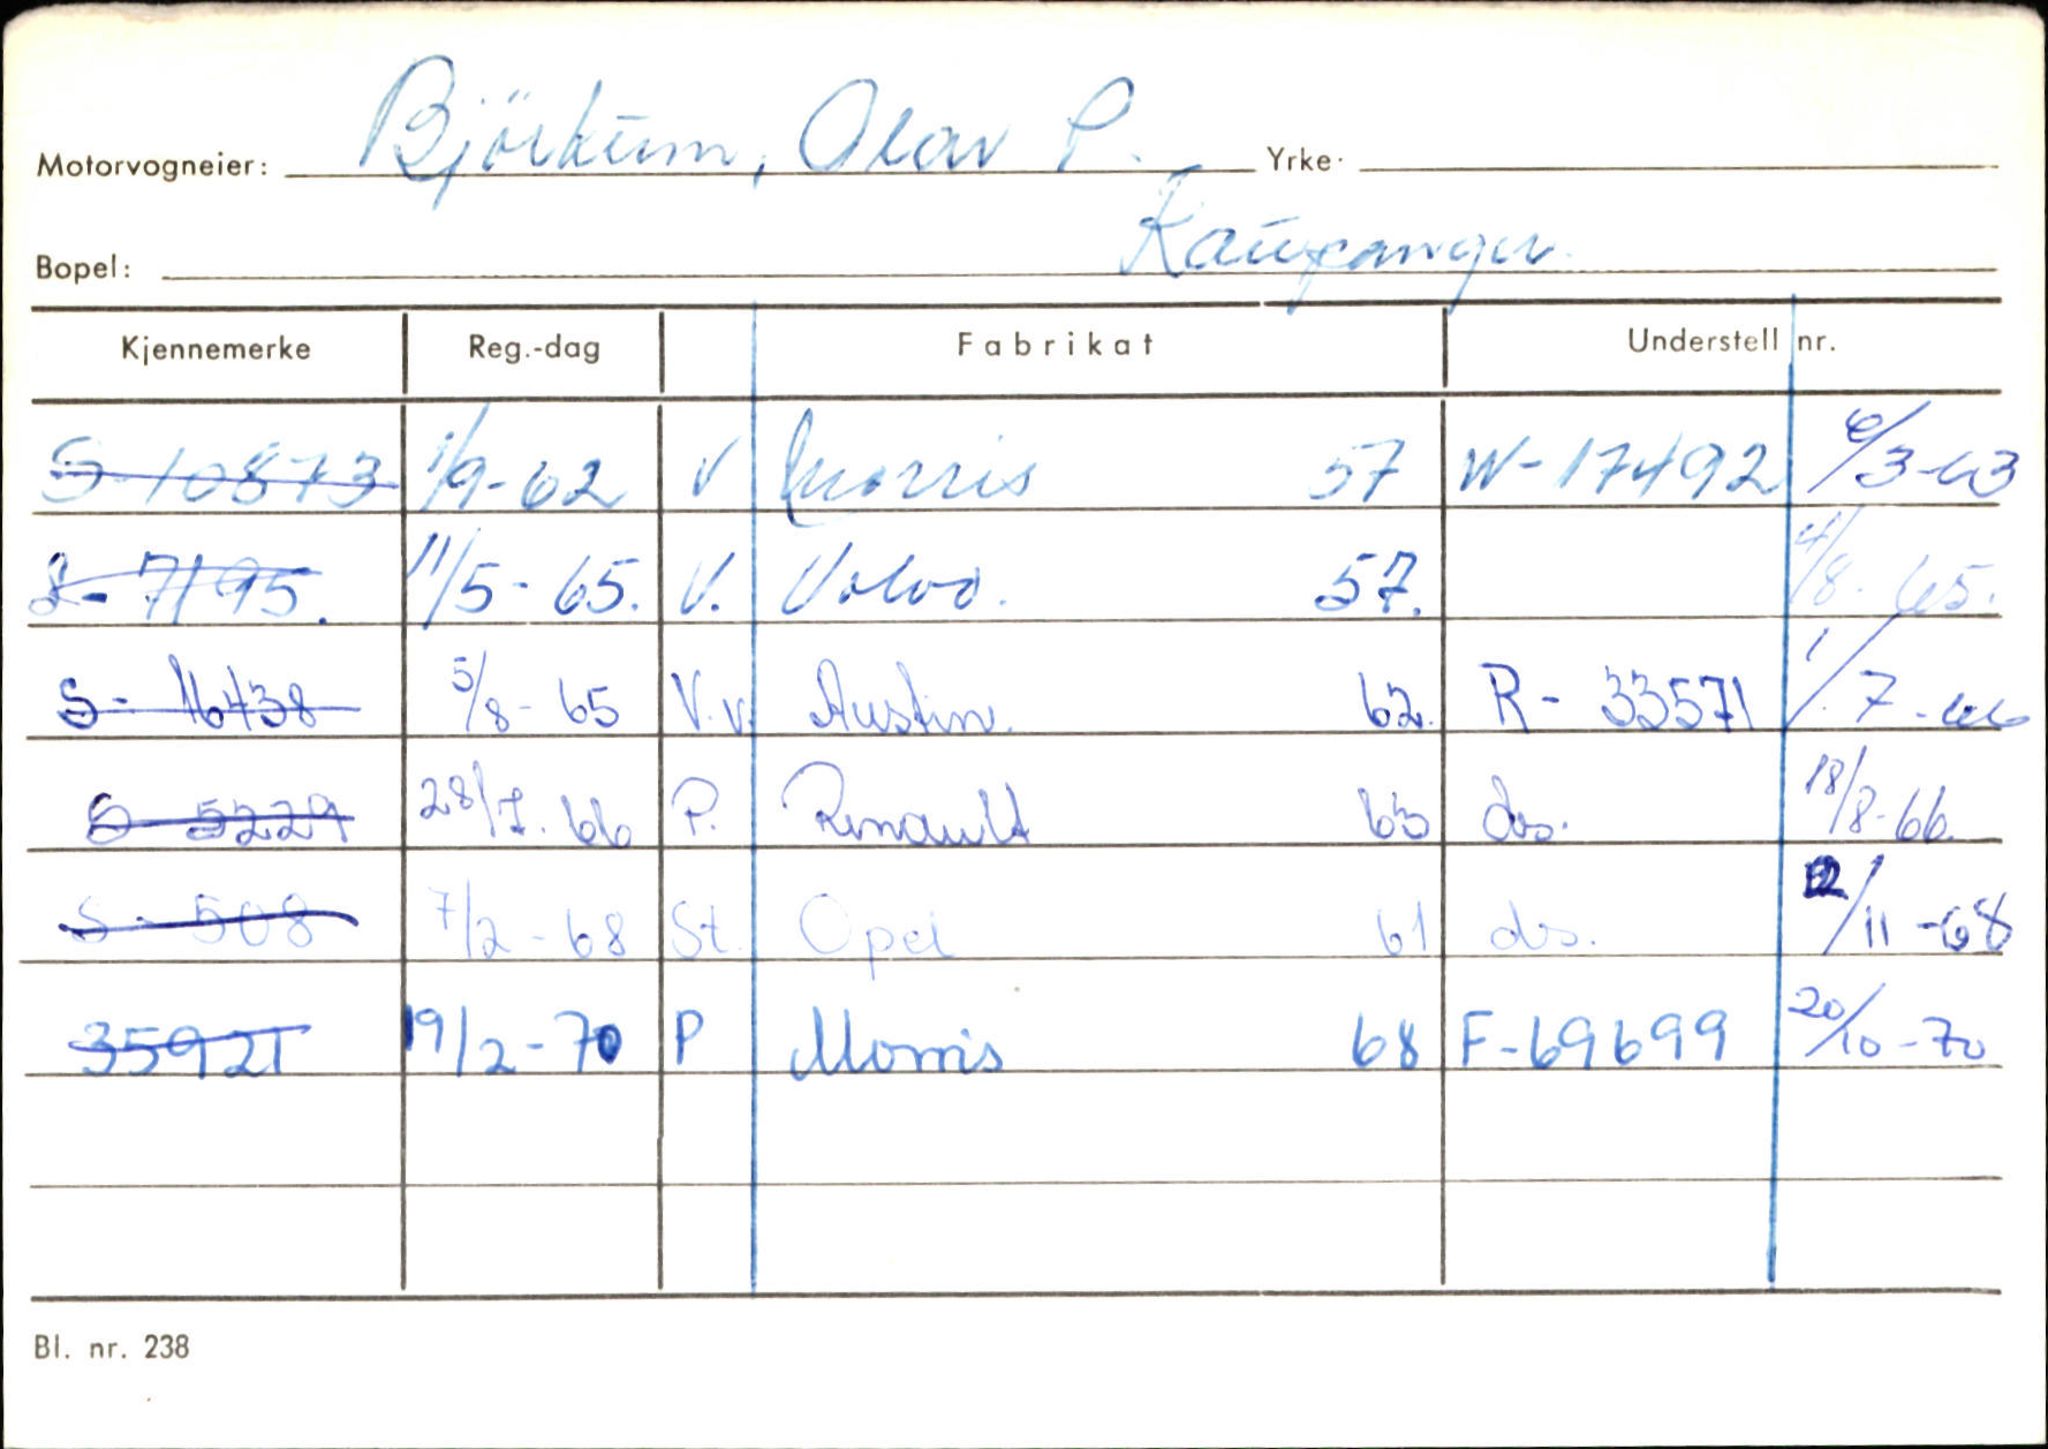 Motorvogneier: Björkum, Olav P. Yrke:
Bopel: Kaupanger.
Kjennemerke Reg.-dag Fabrikat Understell nr.
S-10873 1/9-62 V Morris 57 W-17492 6/3-63
S-7195. 11/5-65. V. Volvo. 57. 4/8-65.
S-16438 5/8-65 V.v. Austin. 62. R-33571 1/7-66
S-5229 28/7.66 P. Renault 63 ds. 18/8-66.
S-508 7/2-68 St. Opel 61 ds. 12/11-68
35921 19/2-70 P Morris 68 F-69699 20/10-70
Bl. nr. 238